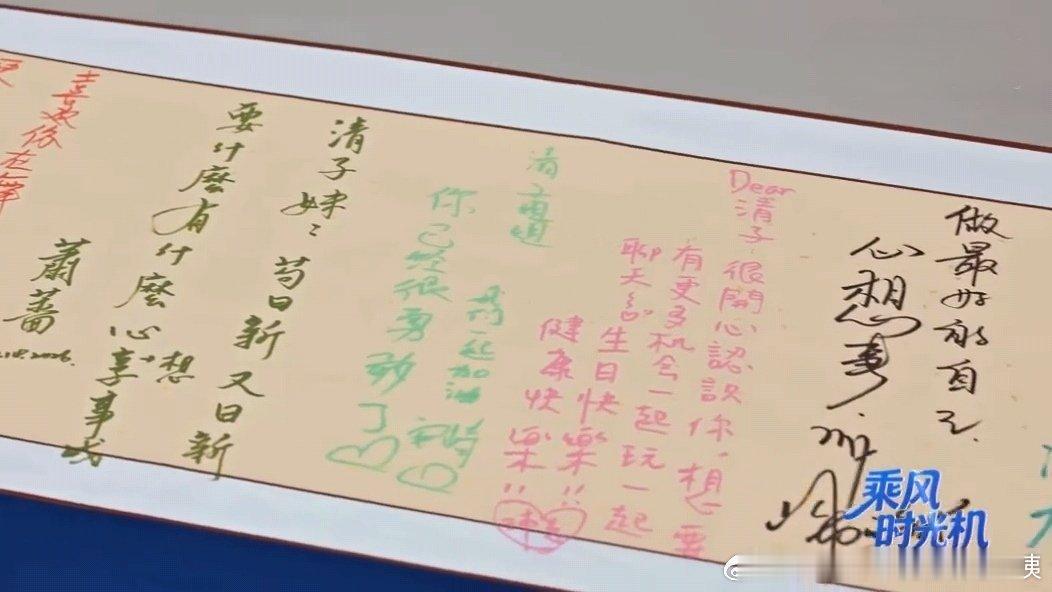 做最好的自己.
心想事
Dear
清子,很開心認識你,想要
有更多機会一起玩一起
聊天
生日快樂!!
健康快樂!!
清子
你已经很勇敢了
一起加油
清子妹〻
苟日新又日新
要什麼有什麼心想事成
蕭薔
喜欢你在
乘风
时光机